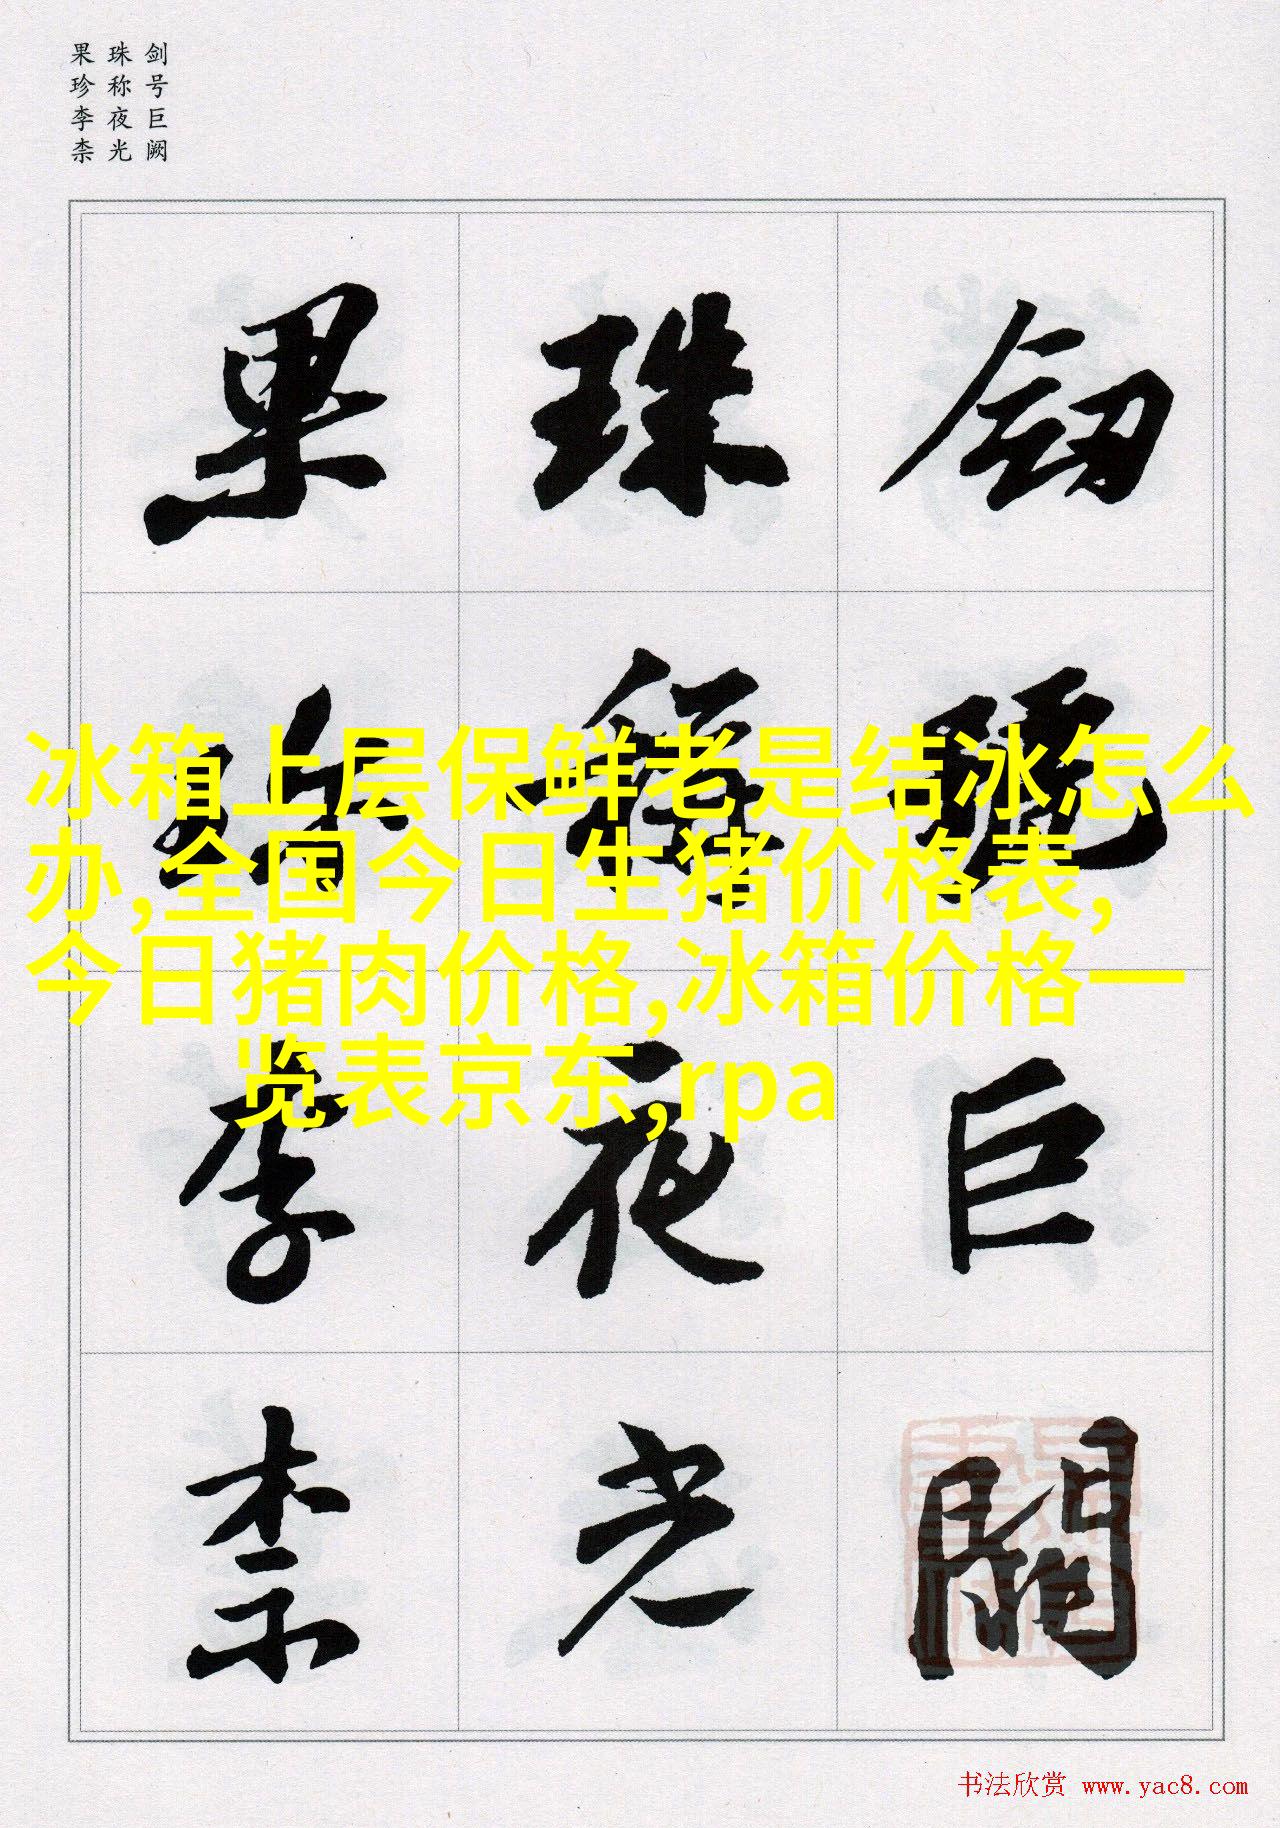 剑号巨阙
珠称夜光
果珍李柰
劒號巨闕
珠稱夜光
果珎李柰
冰箱上层保鲜老是结冰怎么
办,全国今日生猪价格表,
今日猪肉价格,冰箱价格一
览表京东,rpa
书法欣赏 www.yac8.com